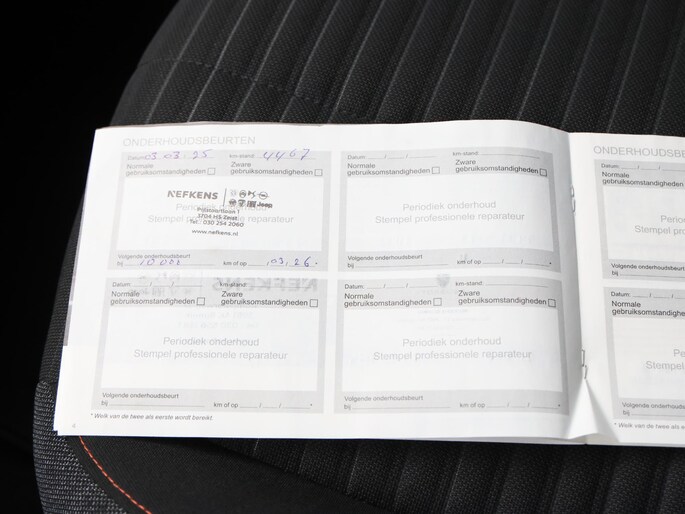 ONDERHOUDSBEURTEN
Datum: 03.03.25 km-stand: 4467
Normale gebruiksomstandigheden
Zware gebruiksomstandigheden
NEFKENS
Jeep
Periodiek onderhoud
Stempel professionele reparateur
3704 HS Zeist
Tel.: 030 254 2060
www.nefkens.nl
Volgende onderhoudsbeurt
bij 10 000 km of op .03.26 *
Datum: / / km-stand:
Normale gebruiksomstandigheden
Zware gebruiksomstandigheden
Periodiek onderhoud
Stempel professionele reparateur
Volgende onderhoudsbeurt
bij km of op / / *
Datum: / / km-stand:
Normale gebruiksomstandigheden
Zware gebruiksomstandigheden
Periodiek onderhoud
Stempel professionele reparateur
Volgende onderhoudsbeurt
bij km of op / / *
Datum: / / km-stand:
Normale gebruiksomstandigheden
Zware gebruiksomstandigheden
Periodiek onderhoud
Stempel professionele reparateur
Volgende onderhoudsbeurt
bij km of op / / *
* Welk van de twee als eerste wordt bereikt.
ONDERHOUDSBE
Datum: / /
Normale
gebruiksomstandighed
Stempel
Volgende onderhoudsbeurt
bij
Datum: / /
Normale
gebruiksomstandighed
Stempel
Volgende onderhoudsbeurt
bij
* Welk van de twee als eer